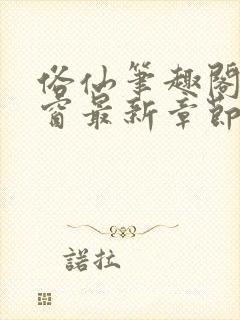 俗仙筆趣閣
窗最新章節
諾拉